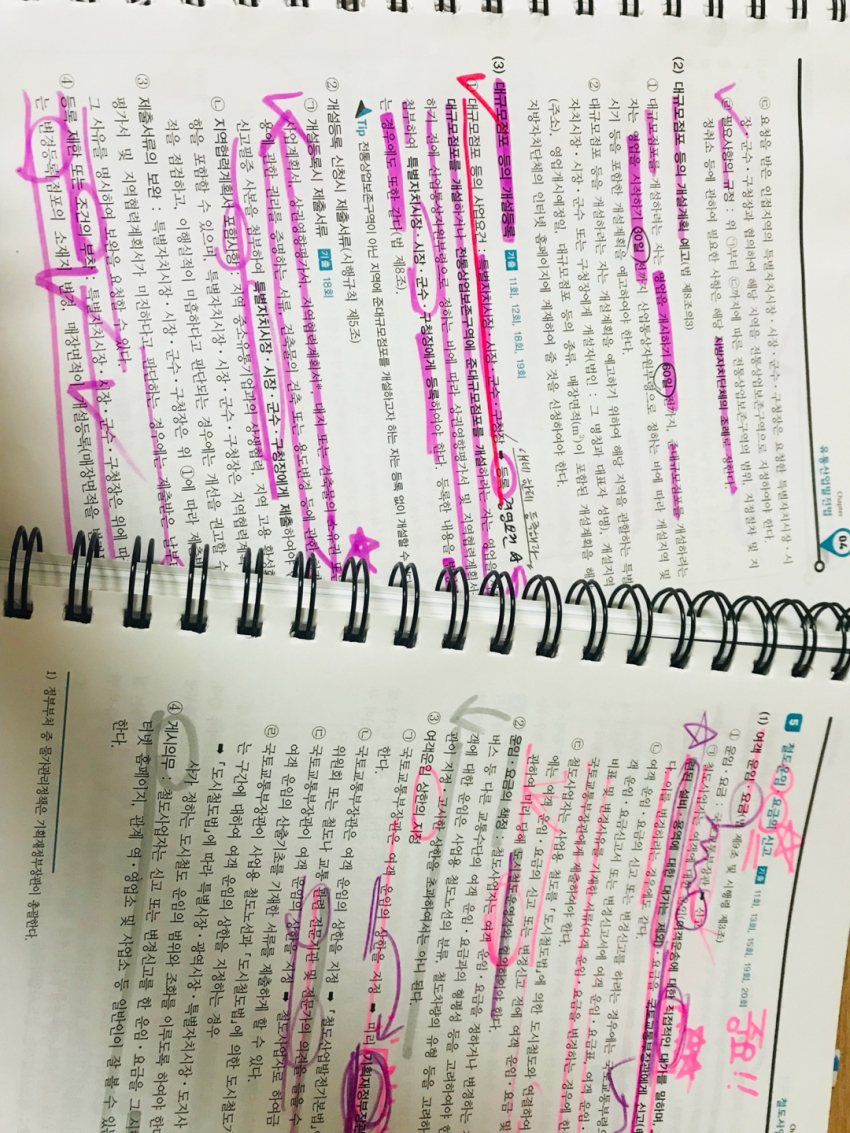 유통산업발전법
Chapter
04
㉢ 요청을 받은 인접지역의 특별자치시장·시장·군수·구청장은 요청한 특별자치시장·시
장·군수·구청장과 협의하여 해당 지역을 전통상업보존구역으로 지정하여야 한다.
㉣ 필요사항의 규정 : 위 ㉠부터 ㉢까지에 따른 전통상업보존구역의 범위, 지정절차 및 지
정취소 등에 관하여 필요한 사항은 해당 지방자치단체의 조례로 정한다.
(2) 대규모점포 등의 개설계획 예고(법 제8조의3)
① 대규모점포를 개설하려는 자는 영업을 개시하기 60일 전까지, 준대규모점포를 개설하려는
자는 영업을 시작하기 30일 전까지 산업통상자원부령으로 정하는 바에 따라 개설지역 및
시기 등을 포함한 개설계획을 예고하여야 한다.
② 대규모점포 등을 개설하려는 자는 개설계획을 예고하기 위하여 해당 지역을 관할하는 특별
자치시장·시장·군수 또는 구청장에게 개설자(법인 : 그 명칭과 대표자 성명), 개설지역
(주소), 영업개시예정일, 대규모점포 등의 종류, 매장면적(㎡)이 포함된 개설계획을 해
지방자치단체의 인터넷 홈페이지에 게재하여 줄 것을 신청하여야 한다.
(3) 대규모점포 등의 개설등록 기출 11회, 12회, 18회, 19회
① 대규모점포 등의 사업요건 : 특별자치시장·시장·군수·구청장 ➡ 등록
대규모점포를 개설하거나 전통상업보존구역에 준대규모점포를 개설하려는 자는 영업을
하기 전에 산업통상자원부령으로 정하는 바에 따라 상권영향평가서 및 지역협력계획서
첨부하여 특별자치시장·시장·군수·구청장에게 등록하여야 한다. 등록한 내용을
는 경우에도 또한 같다(법 제8조).
Tip 전통상업보존구역이 아닌 지역에 준대규모점포를 개설하고자 하는 자는 등록 없이 개설할 수
② 개설등록 신청시 제출서류(시행규칙 제5조)
㉠ 개설등록시 제출서류 기출 18회
사업계획서, 상권영향평가서, 지역협력계획서, 대지 또는 건축물의 소유권 또는
용에 관한 권리를 증명하는 서류, 건축물의 건축 또는 용도변경 등에 관한
신고필증 사본을 첨부하여 특별자치시장·시장·군수·구청장에게 제출하여야
㉡ 지역협력계획서 포함사항 : 지역 중소유통기업과의 상생협력, 지역 고용 활성화
항을 포함할 수 있으며, 특별자치시장·시장·군수·구청장은 지역협력계획
적을 점검하고, 이행실적이 미흡하다고 판단되는 경우에는 개선을 권고할 수
③ 제출서류의 보완 : 특별자치시장·시장·군수·구청장은 위 ①에 따라 제출
평가서 및 지역협력계획서가 미진하다고 판단하는 경우에는 제출받은 날부
그 사유를 명시하여 보완을 요청할 수 있다.
④ 등록 제한 또는 조건의 부착 : 특별자치시장·시장·군수·구청장은 위에 따
는 변경등록(점포의 소재지 변경, 매장면적이 개설등록(매장면적을
철도사
5 철도운임·요금의 신고
(1) 여객 운임·요금의 기출 11회, 13회, 15회, 19회, 20회
중요!!
① 운임·요금 : 국토교통부장관 ➡ 신고 제9조 및 시행령 제3조)
㉠ 철도사업자는 여객에 대한 운임(여객운송에 대한 직접적인 대가를 말하며,
련된 설비·용역에 대한 대가는 제외)·요금을 국토교통부장관에게 신고
다. 이를 변경하려는 경우에도 같다.
㉡ 여객 운임·요금의 신고 또는 변경신고를 하려는 경우에는 국토교통부령으
객 운임·요금신고서 또는 변경신고서에 여객 운임·요금표, 여객 운임·
비표 및 변경사유를 기재한 서류(여객 운임·요금을 변경하는 경우에 한
국토교통부장관에게 제출하여야 한다.
㉢ 철도사업자는 사업용 철도를 「도시철도법」에 의한 도시철도와 연결하여
에는 여객 운임·요금의 신고 또는 변경신고 전에 여객 운임·요금 및
관하여 미리 당해 도시철도운영자와 협의하여야 한다.
② 운임·요금의 책정 : 철도사업자는 여객 운임·요금을 정하거나 변경하는
버스 등 다른 교통수단의 여객 운임·요금과의 형평성 등을 고려하여야 한
객에 대한 운임은 사업용 철도노선의 분류, 철도차량의 유형 등을 고려하
관이 지정·고시한 상한을 초과하여서는 아니 된다.
③ 여객운임 상한의 지정
㉠ 국토교통부장관은 여객 운임의 상한을 지정 ➡ 미리 기획재정부장관
한다.
㉡ 국토교통부장관은 여객 운임의 상한을 지정 ➡ 「철도산업발전기본법」
위원회 또는 철도나 교통 관련 전문기관 및 전문가의 의견을 들을 수
㉢ 국토교통부장관이 여객 운임의 상한을 지정 ➡ 철도사업자로 하여금
여객 운임의 산출기초를 기재한 서류를 제출하게 할 수 있다.
㉣ 국토교통부장관이 사업용 철도노선과 「도시철도법」에 의한 도시철도가
는 구간에 대하여 여객 운임의 상한을 지정하는 경우
➡ 「도시철도법」에 따라 특별시장·광역시장·특별자치시장·도지사
사가 정하는 도시철도 운임의 범위와 조화를 이루도록 하여야 한
④ 게시의무 : 철도사업자는 신고 또는 변경신고를 한 운임·요금을 그 시행
터넷 홈페이지, 관계 역·영업소 및 사업소 등 일반인이 잘 볼 수 있
한다.
1) 정부부처 중 물가관리정책은 기획재정부장관이 총괄한다.